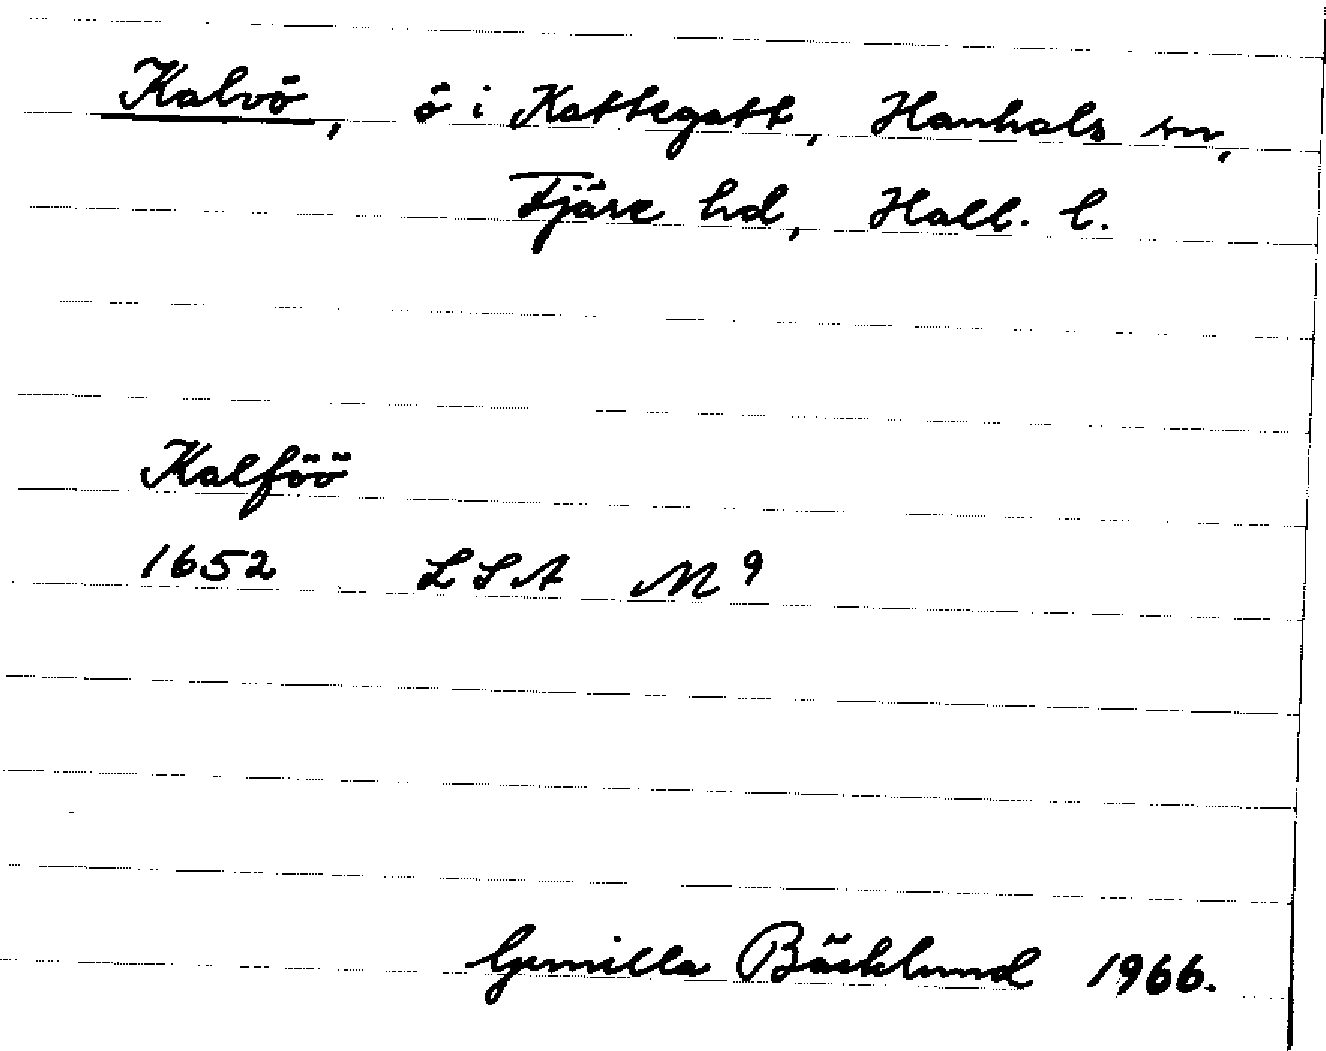 Kalvö, ö i Kattegatt, Hanhals sn,
Fjäre hd, Hall. l.
Kalföö
1652 LSA M 9
Gunilla Bäcklund 1966.